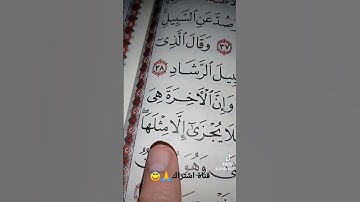 وَصُدَّ عَنِ ٱلسَّبِيلِ
٣٧ وَقَالَ ٱلَّذِىٓ
سَبِيلَ ٱلرَّشَادِ ٣٨
وَإِنَّ ٱلْأَخِرَةَ هِىَ
فَلَا يُجْزَىٰٓ إِلَّا مِثْلَهَا
وَهُوَ
قناة اشتراك🙏😊